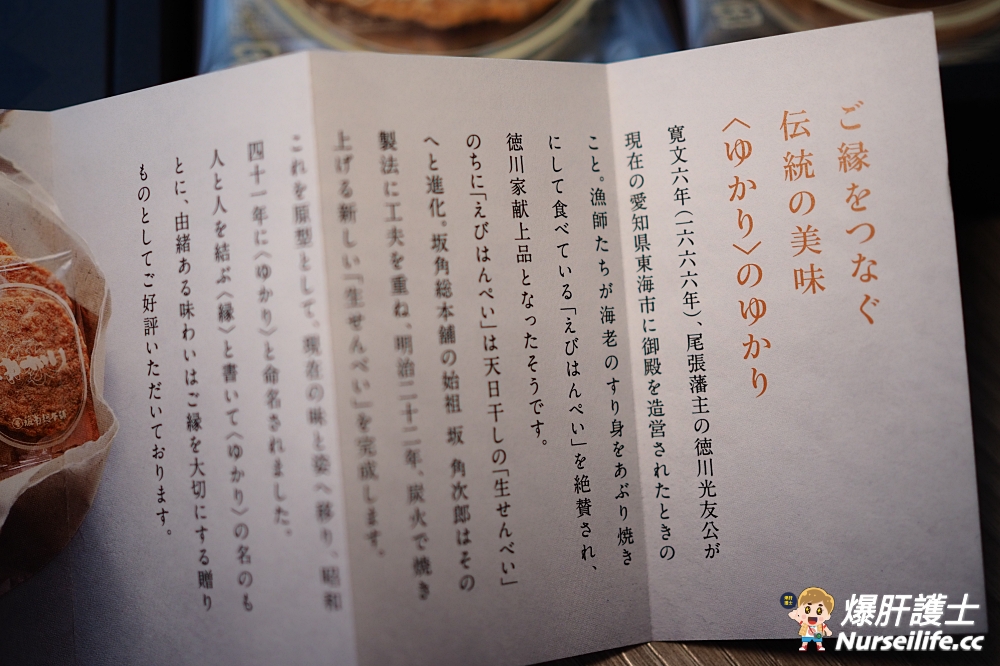 ご縁をつなぐ
伝統の美味
〈ゆかり〉のゆかり
寛文六年(一六六六年)、尾張藩主の徳川光友公が
現在の愛知県東海市に御殿を造営されたときの
こと。漁師たちが海老のすり身をあぶり焼き
にして食べている「えびはんぺい」を絶賛され、
徳川家献上品となったそうです。
のちに「えびはんぺい」は天日干しの「生せんべい」
へと進化。坂角総本舖の始祖 坂 角次郎はその
製法に工夫を重ね、明治二十二年、炭火で焼き
上げる新しい「生せんべい」を完成します。
これを原型として、現在の味と姿へ移り、昭和
四十一年に〈ゆかり〉と命名されました。
人と人を結ぶ〈縁〉と書いて〈ゆかり〉の名のも
とに、由緒ある味わいはご縁を大切にする贈り
ものとしてご好評いただいております。
ゆかり
爆肝護士
Nurseilife.cc